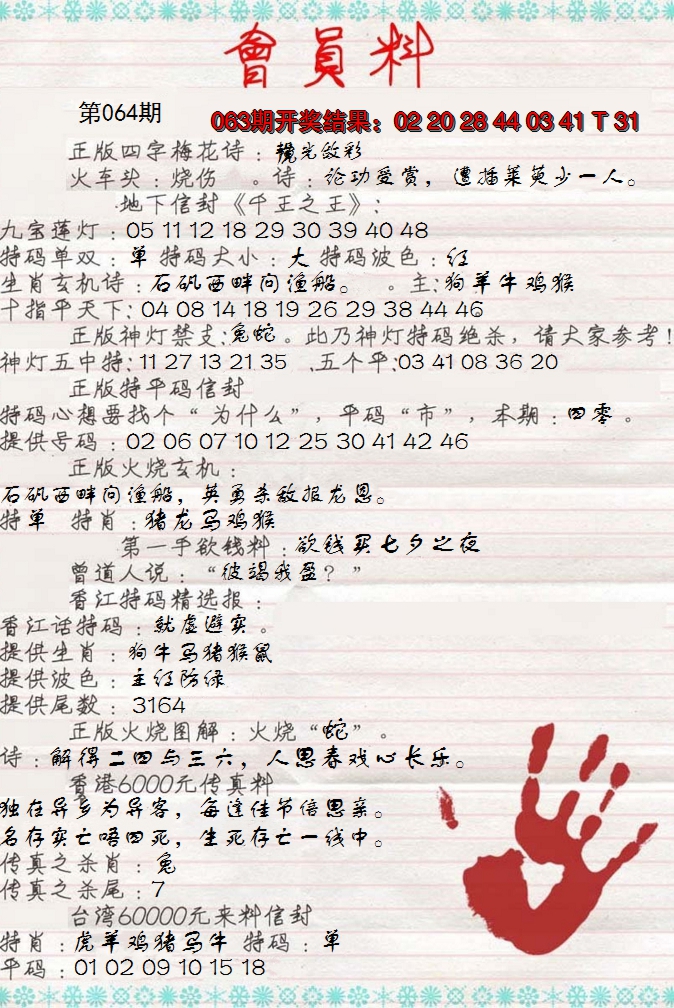 會員料
第064期
063期开奖结果：02 20 28 44 03 41 T 31
正版四字梅花诗：光敌彩
火车头：烧伤 。诗：论功受赏，遭插茱萸少一人。
地下信封《千王之王》：
九宝莲灯：05 11 12 18 29 30 39 40 48
特码单双：单 特码大小：大 特码波色：红
生肖玄机诗：石矶西畔问渔船。 。主：狗羊牛鸡猴
十指平天下：04 08 14 18 19 26 29 38 44 46
正版神灯禁支：兔蛇。此乃神灯特码绝杀，请大家参考！
神灯五中特：11 27 13 21 35 .五个平：03 41 08 36 20
正版特平码信封
特码心想要找个“为什么”，平码“市”，本期：四零。
提供号码：02 06 07 10 12 25 30 41 42 46
正版火烧玄机：
石矶西畔问渔船，英勇杀敌报龙恩。
特单 特肖：猪龙马鸡猴
第一手欲钱料：欲钱买七夕之夜
曾道人说：“彼竭我盈？”
香江特码精选报：
香江话特码：就虚避实。
提供生肖：狗牛马猪猴鼠
提供波色：主红防绿
提供尾数：3164
正版火烧图解：火烧“蛇”。
诗：解得二四与三六，人思春戏心长乐。
香港6000元传真料
独在异乡为异客，每逢佳节倍思亲。
名存实亡唔四死，生死存亡一线中。
传真之杀肖：兔
传真之杀尾：7
台湾60000元来料信封
特肖：虎羊鸡猪马牛 特码：单
平码：01 02 09 10 15 18